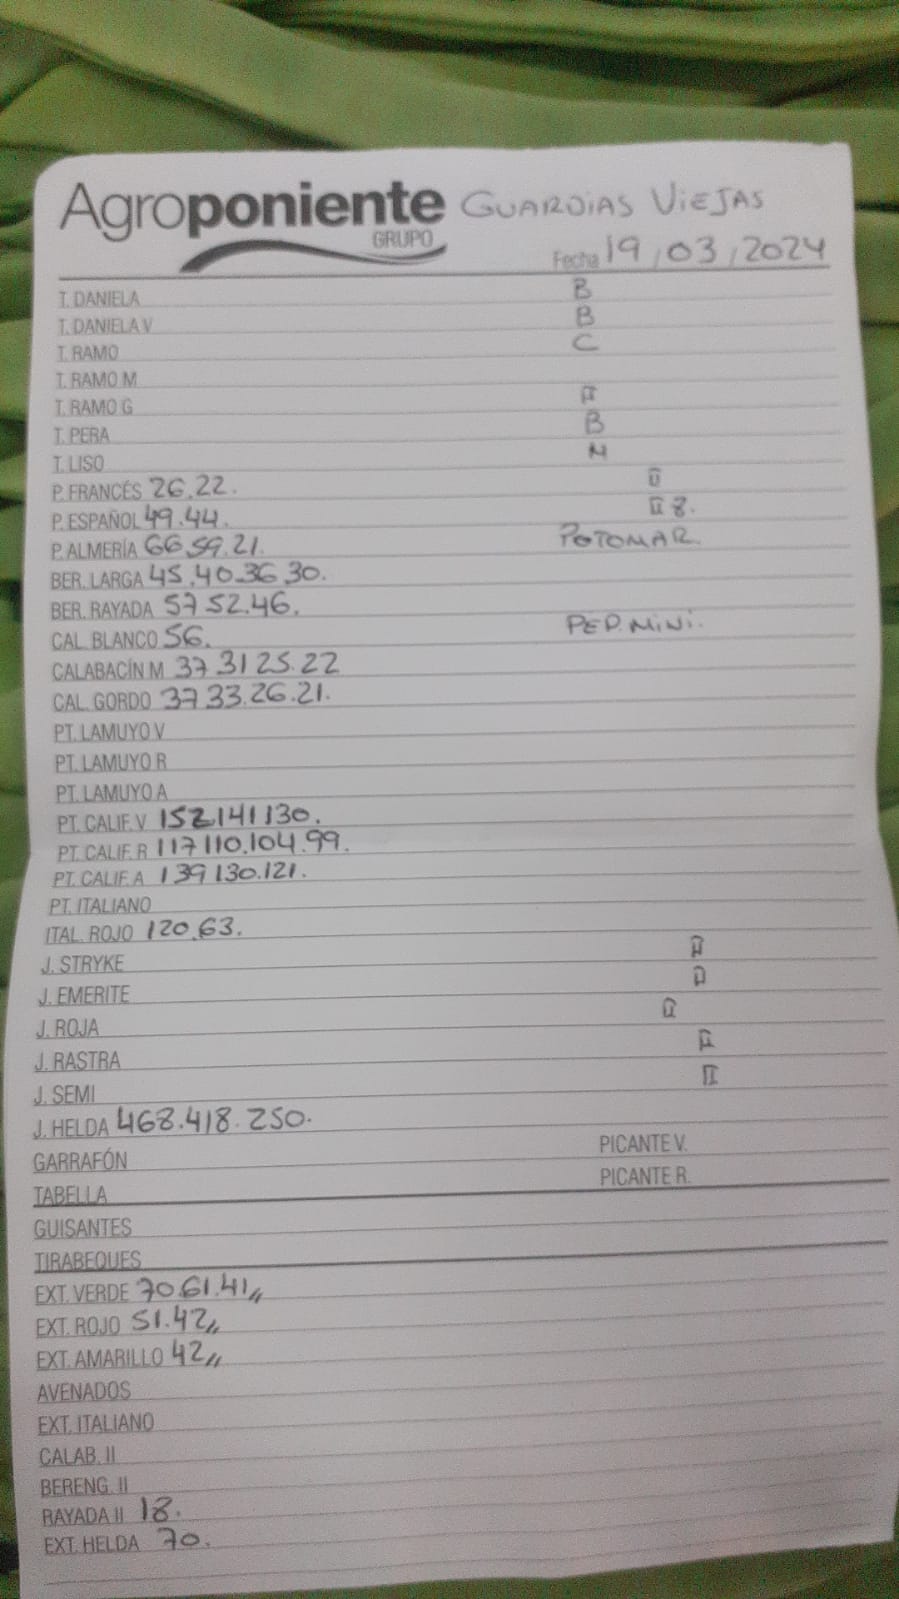 Agroponiente GUARDIAS VIEJAS
GRUPO
Fecha 19/03/2024
T. DANIELA B
T. DANIELA V B
T. RAMO C
T. RAMO M
T. RAMO G II
T. PERA B
T. LISO M
P. FRANCÉS 26.22. II
P. ESPAÑOL 49.44. II 8.
P. ALMERÍA 66 59.21. POTOMAR.
BER. LARGA 45.40.36 30.
BER. RAYADA 57 52.46.
CAL. BLANCO 56. PEP. MINI.
CALABACÍN M 37 31 25.22
CAL. GORDO 37 33.26.21.
PT. LAMUYO V
PT. LAMUYO R
PT. LAMUYO A
PT. CALIF. V 152 141 130.
PT. CALIF. R 117 110.104.99.
PT. CALIF. A 139 130.121.
PT. ITALIANO
ITAL. ROJO 120.63.
J. STRYKE II
J. EMERITE II
J. ROJA II
J. RASTRA II
J. SEMI II
J. HELDA 468.418.250.
GARRAFÓN PICANTE V.
TABELLA PICANTE R.
GUISANTES
TIRABEQUES
EXT. VERDE 70.61.41,,
EXT. ROJO 51.42,,
EXT. AMARILLO 42,,
AVENADOS
EXT. ITALIANO
CALAB. II
BERENG. II
RAYADA II 18.
EXT. HELDA 70.